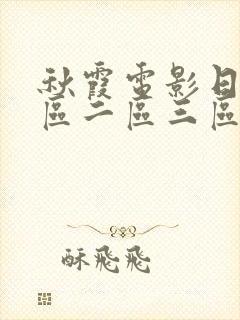 秋霞電影日
區二區三區
酥飛飛